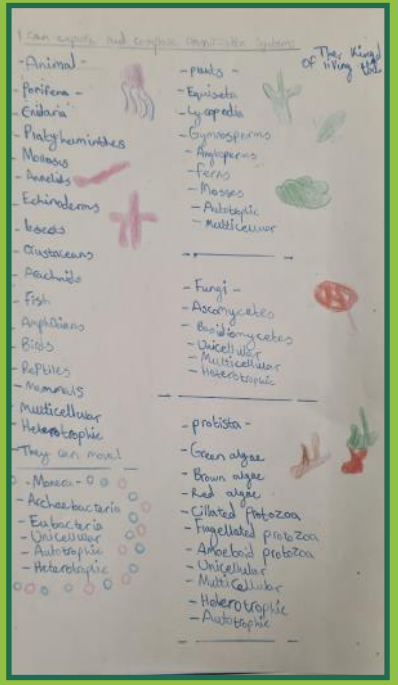 I can explore and compare classification systems
The Kingd
of living
-Animal-
- Porifera -
- Cnidaria
- Platyhelminthes
- Molluscs
- Annelids
- Echinoderms
- Insects
- Crustaceans
- Arachnids
- Fish
- Amphibians
- Birds
- Reptiles
- Mammals
Multicellular
- Heterotrophic
-They can move!
- Monera -
- Archaebacteria
- Eubacteria
- Unicellular
- Autotrophic
- Heterotrophic
- plants -
- Equiseta
- Lycopedia
- Gymnosperms
- Angiosperms
- Ferns
- Mosses
- Autotrophic
- Multicellular
- Fungi -
- Ascomycetes
- Basidiomycetes
- Unicellular
- Multicellular
- Heterotrophic
- protista -
- Green algae
- Brown algae
- Red algae
- Ciliated protozoa
- Flagellated protozoa
- Amoeboid protozoa
- Unicellular
- Multicellular
- Heterotrophic
- Autotrophic